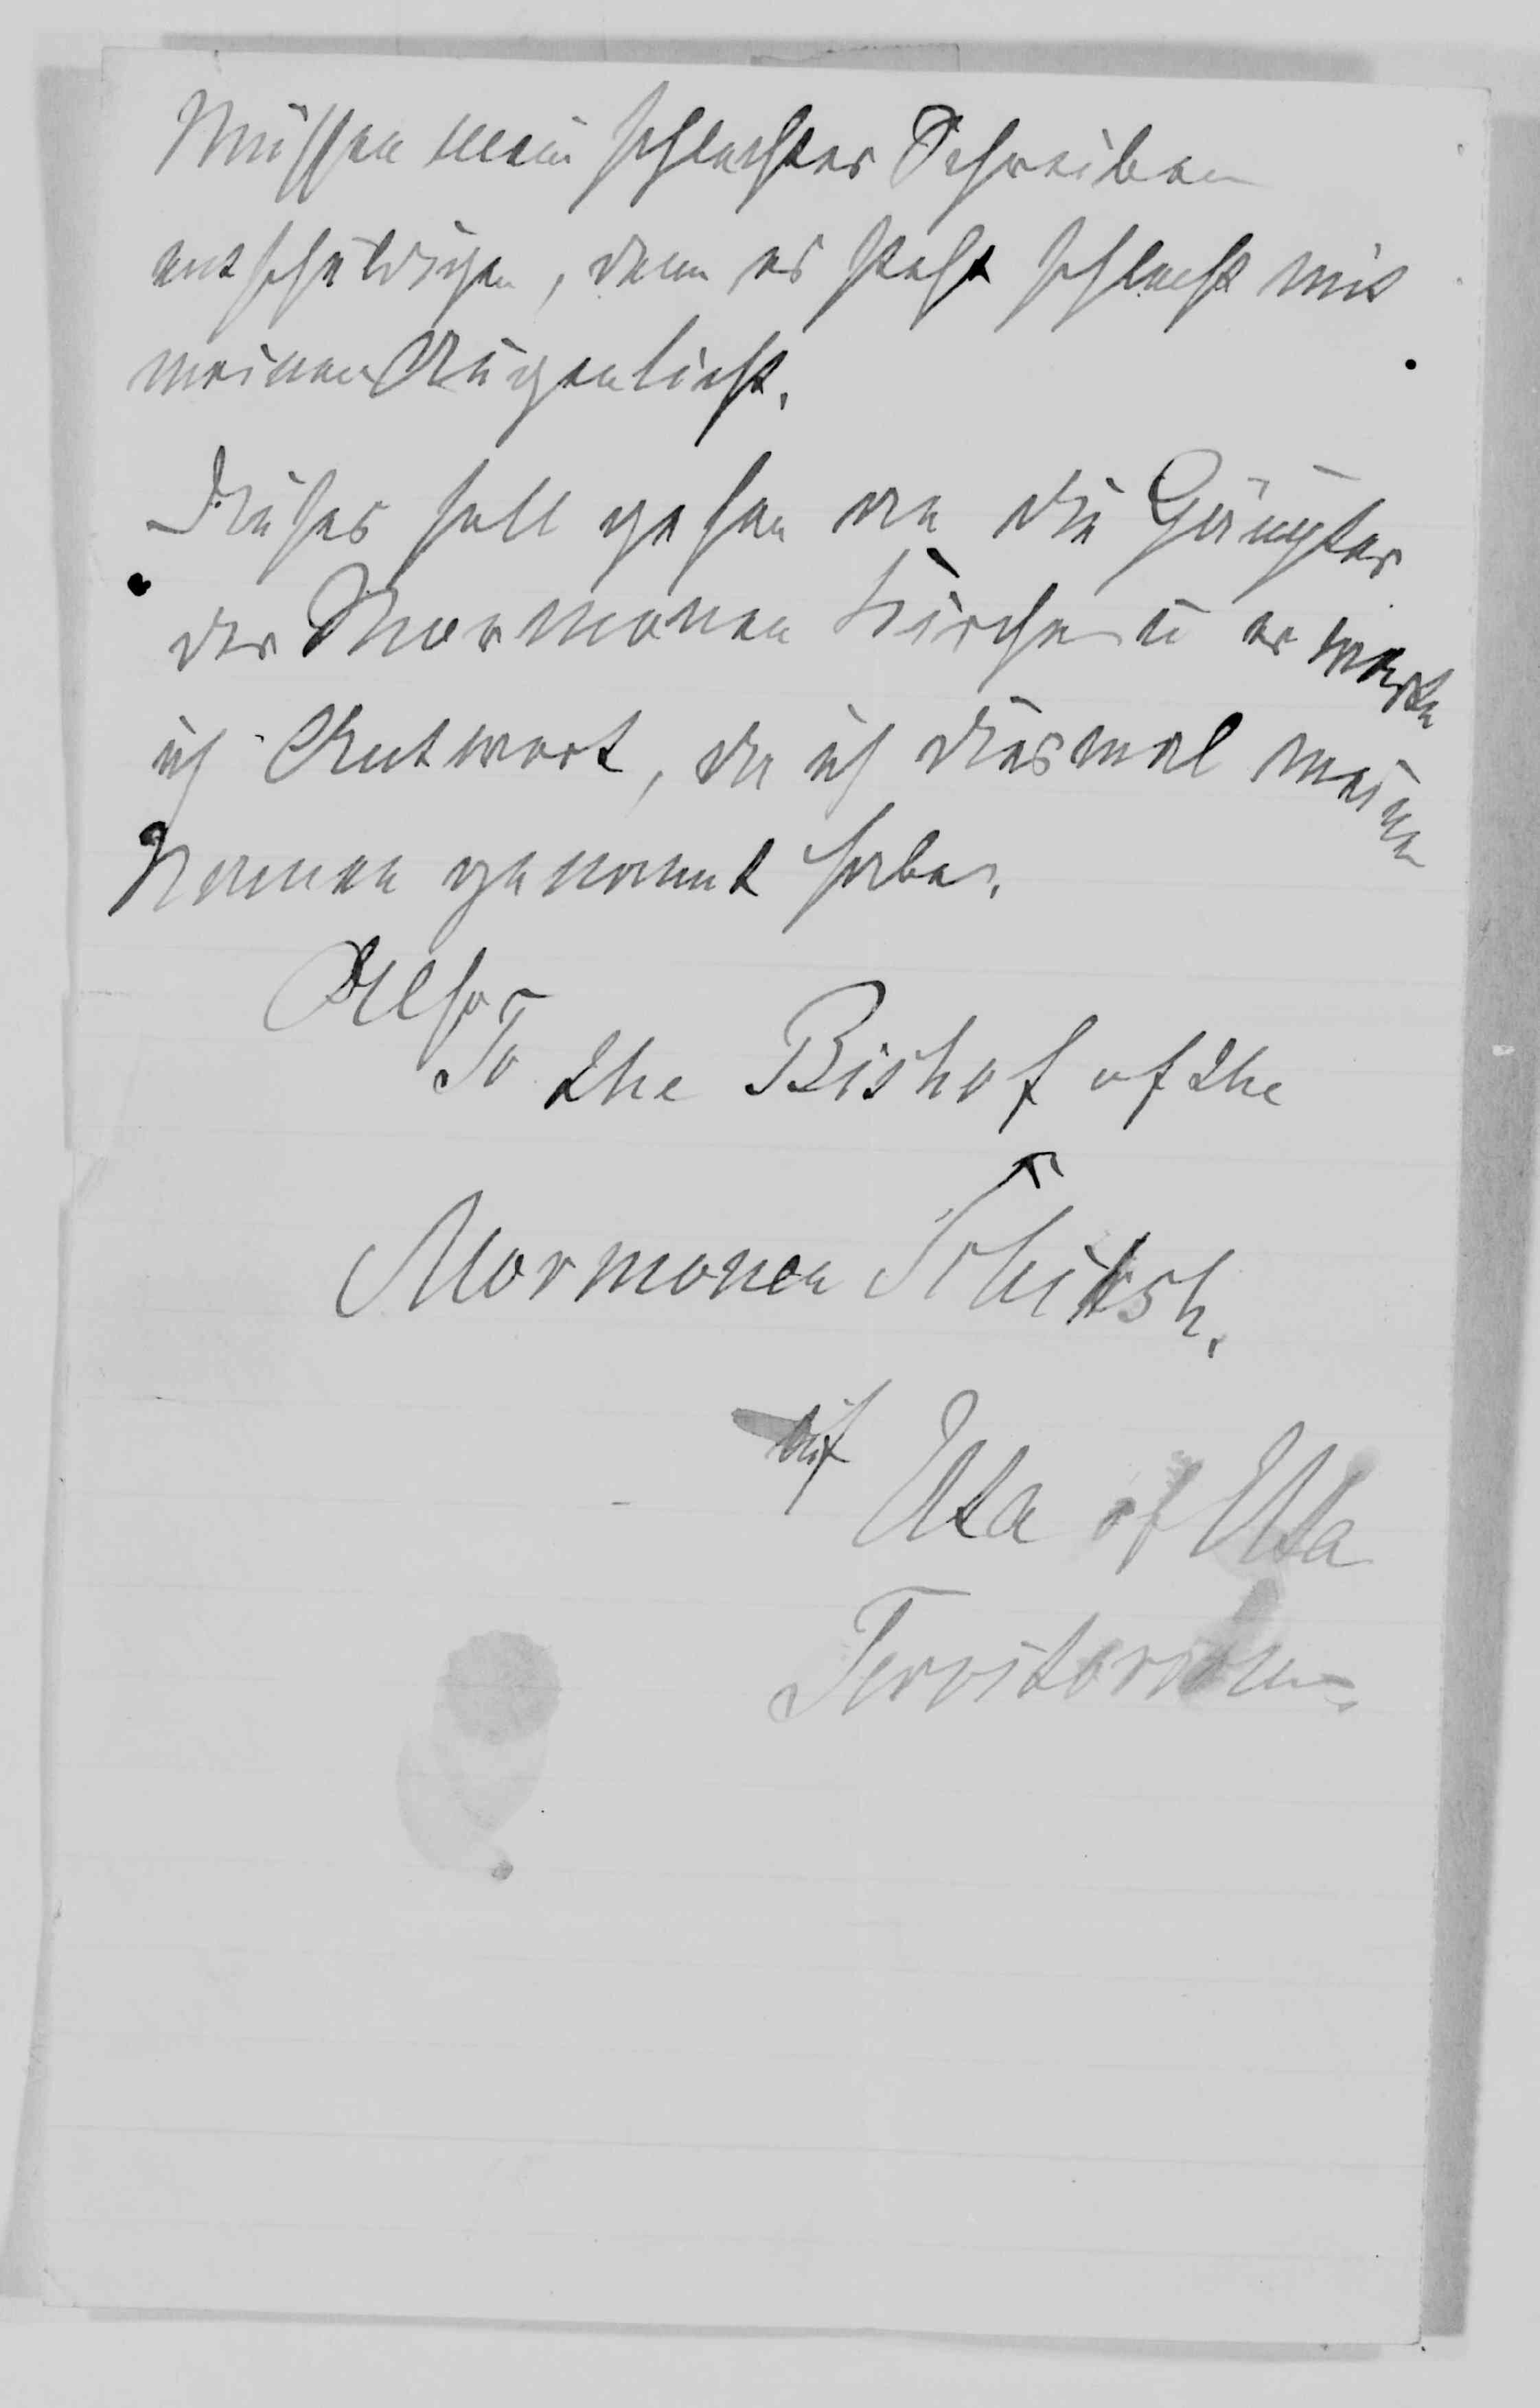 Müssen mein schlechtes Schreiben
entschuldigen, denn es steht schlecht mit
meinen Augenlicht.
Dieses soll gehen an die Häupter
der Mormonen Kirche u erwarte
ich Antwort, da ich diesmal meinen
Namen genannt habe.
Also
To the Bishof of the
Mormonen
auf Uta of Uta
Territorium